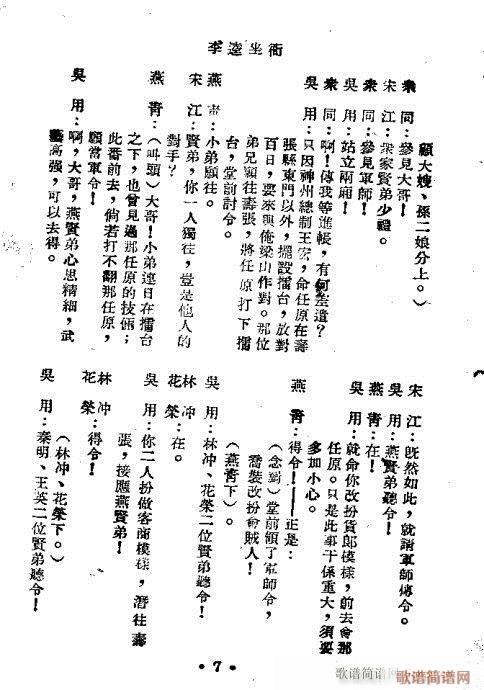 李逵坐衙
顧大嫂、孫二娘分上。）
衆　同：參見大哥！
宋　江：衆家賢弟少禮。
衆　同：參見軍師！
吳　用：站立兩廂！
衆　同：啊！傳我等進帳，有何差遣？
吳　用：只因神州總制王宏，命任原在壽
張縣東門以外，擺設擂台，放對
百日，要來與俺梁山作對。那位
弟兄願往壽張，將任原打下擂
台，堂前討令。
燕　青：小弟願往。
宋　江：賢弟，你一人獨往，豈是他人的
對手？
燕　青：（叫頭）大哥！小弟連日在擂台
之下，也曾見過那任原的技倆；
此番前去，倘若打不翻那任原，
願當軍令！
吳　用：啊，大哥，燕賢弟心思精細，武
藝高强，可以去得。
宋　江：旣然如此，就請軍師傳令。
吳　用：燕賢弟聽令！
燕　青：在！
吳　用：就命你改扮貨郎模樣，前去會那
任原。只是此事干係重大，須要
多加小心。
燕　青：得令！——正是：
（念對）堂前領了軍師令，
喬裝改扮會賊人！
（燕青下）。
吳　用：林冲、花榮二位賢弟聽令！
林　冲
花　榮：在。
吳　用：你二人扮做客商模樣，潛往壽
張，接應燕賢弟！
林　冲
花　榮：得令！
（林冲、花榮下。）
吳　用：秦明、王英二位賢弟聽令！
·7·
歌谱简谱网
www.jianpu.cn
歌谱简谱网